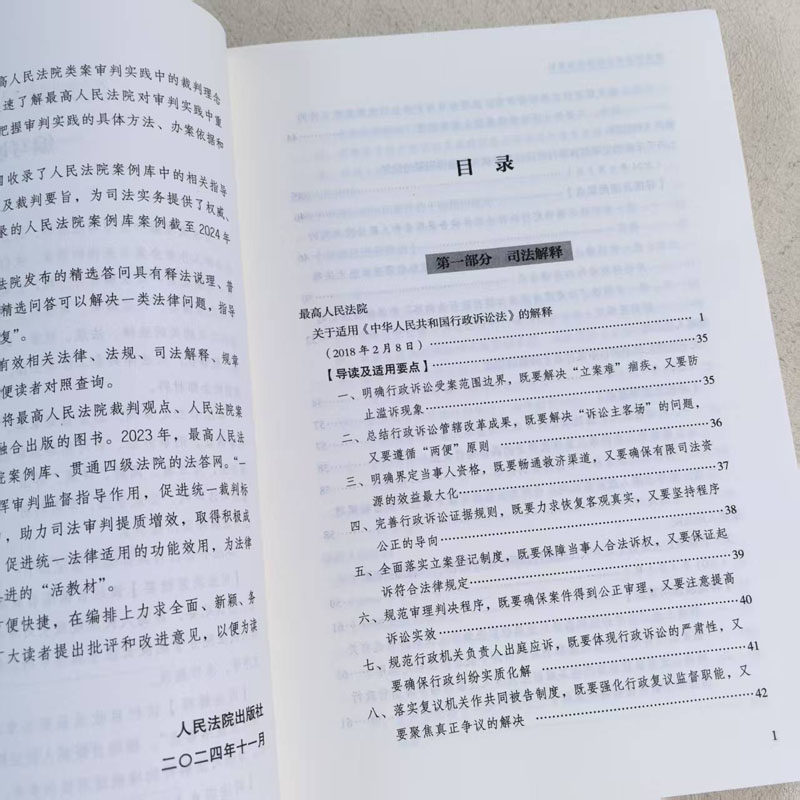 高人民法院类案审判实践中的裁判理念
速了解最高人民法院对审判实践中重
把握审判实践的具体方法、办案依据和
收录了人民法院案例库中的相关指导
及裁判要旨，为司法实务提供了权威、
录的人民法院案例库案例截至2024年
法院发布的精选答问具有释法说理、普
精选问答可以解决一类法律问题，指导
复”。
有效相关法律、法规、司法解释、规章
便读者对照查询。
将最高人民法院裁判观点、人民法院案
融合出版的图书。2023年，最高人民法
院案例库、贯通四级法院的法答网。“一
挥审判监督指导作用，促进统一裁判标
，助力司法审判提质增效，取得积极成
促进统一法律适用的功能效用，为法律
进的“活教材”。
便快捷，在编排上力求全面、新颖、条
大读者提出批评和改进意见，以便为读
人民法院出版社
二〇二四年十一月
目 录
第一部分 司法解释
最高人民法院
关于适用《中华人民共和国行政诉讼法》的解释
（2018年2月8日） 1
【导读及适用要点】 35
一、明确行政诉讼受案范围边界，既要解决“立案难”痼疾，又要防
止滥诉现象 35
二、总结行政诉讼管辖改革成果，既要解决“诉讼主客场”的问题，
又要遵循“两便”原则 36
三、明确界定当事人资格，既要畅通救济渠道，又要确保有限司法资
源的效益最大化 37
四、完善行政诉讼证据规则，既要力求恢复客观真实，又要坚持程序
公正的导向 38
五、全面落实立案登记制度，既要保障当事人合法诉权，又要保证起
诉符合法律规定 39
六、规范审理判决程序，既要确保案件得到公正审理，又要注意提高
诉讼实效 40
七、规范行政机关负责人出庭应诉，既要体现行政诉讼的严肃性，又
要确保行政纠纷实质化解 41
八、落实复议机关作共同被告制度，既要强化行政复议监督职能，又
要聚焦真正争议的解决 42
1